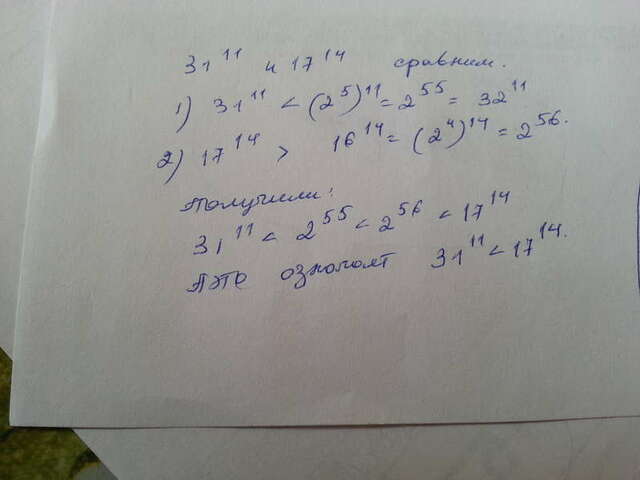 31¹¹ и 17¹⁴ сравним.
1) 31¹¹ < (2⁵)¹¹ = 2⁵⁵ = 32¹¹
2) 17¹⁴ > 16¹⁴ = (2⁴)¹⁴ = 2⁵⁶.
Получили:
31¹¹ < 2⁵⁵ < 2⁵⁶ < 17¹⁴
означает 31¹¹ < 17¹⁴.